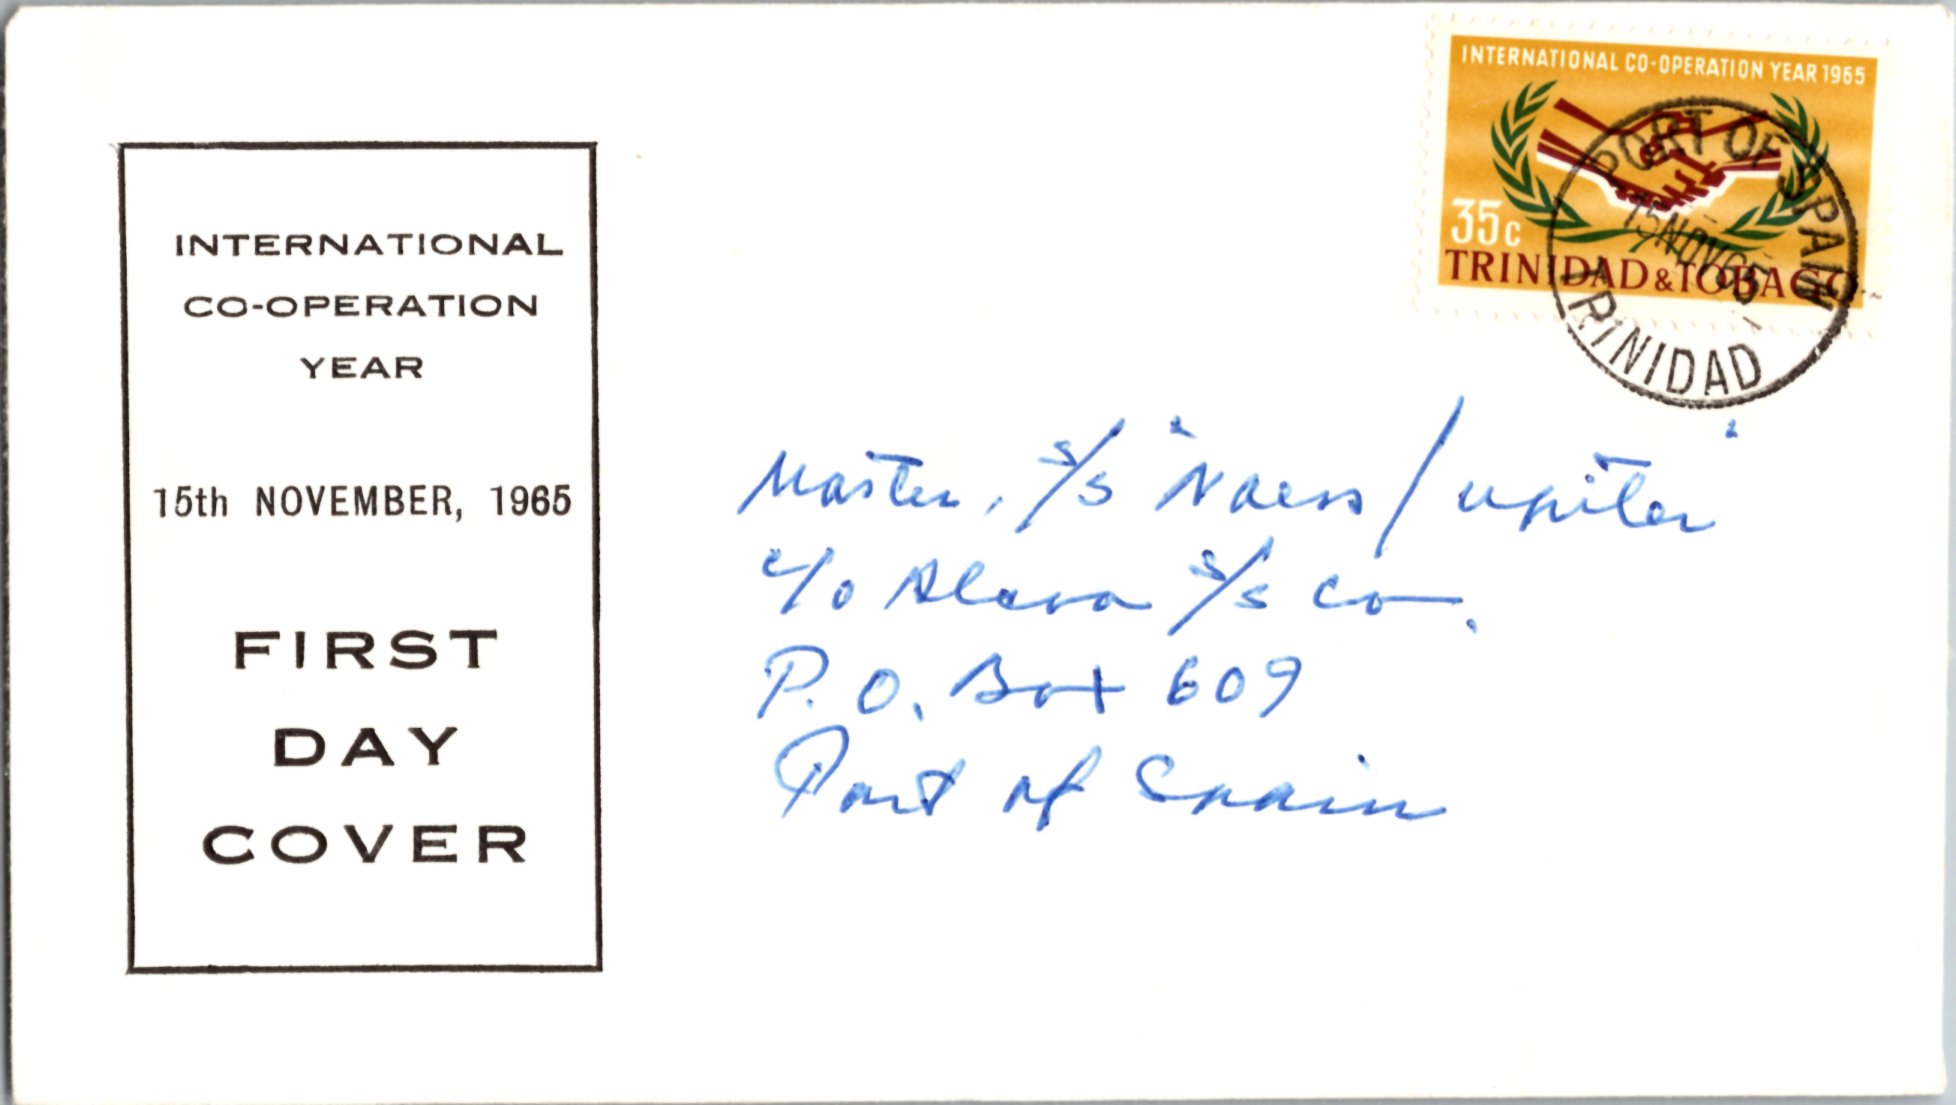 INTERNATIONAL CO-OPERATION YEAR 1965
35c
TRINIDAD & TOBAGO
PORT OF SPAIN
15 NOV 65
TRINIDAD
INTERNATIONAL
CO-OPERATION
YEAR
15th NOVEMBER, 1965
FIRST
DAY
COVER
Master, s/s "Naess Jupiter"
c/o Alcoa s/s Co.
P.O. Box 609
Port of Spain